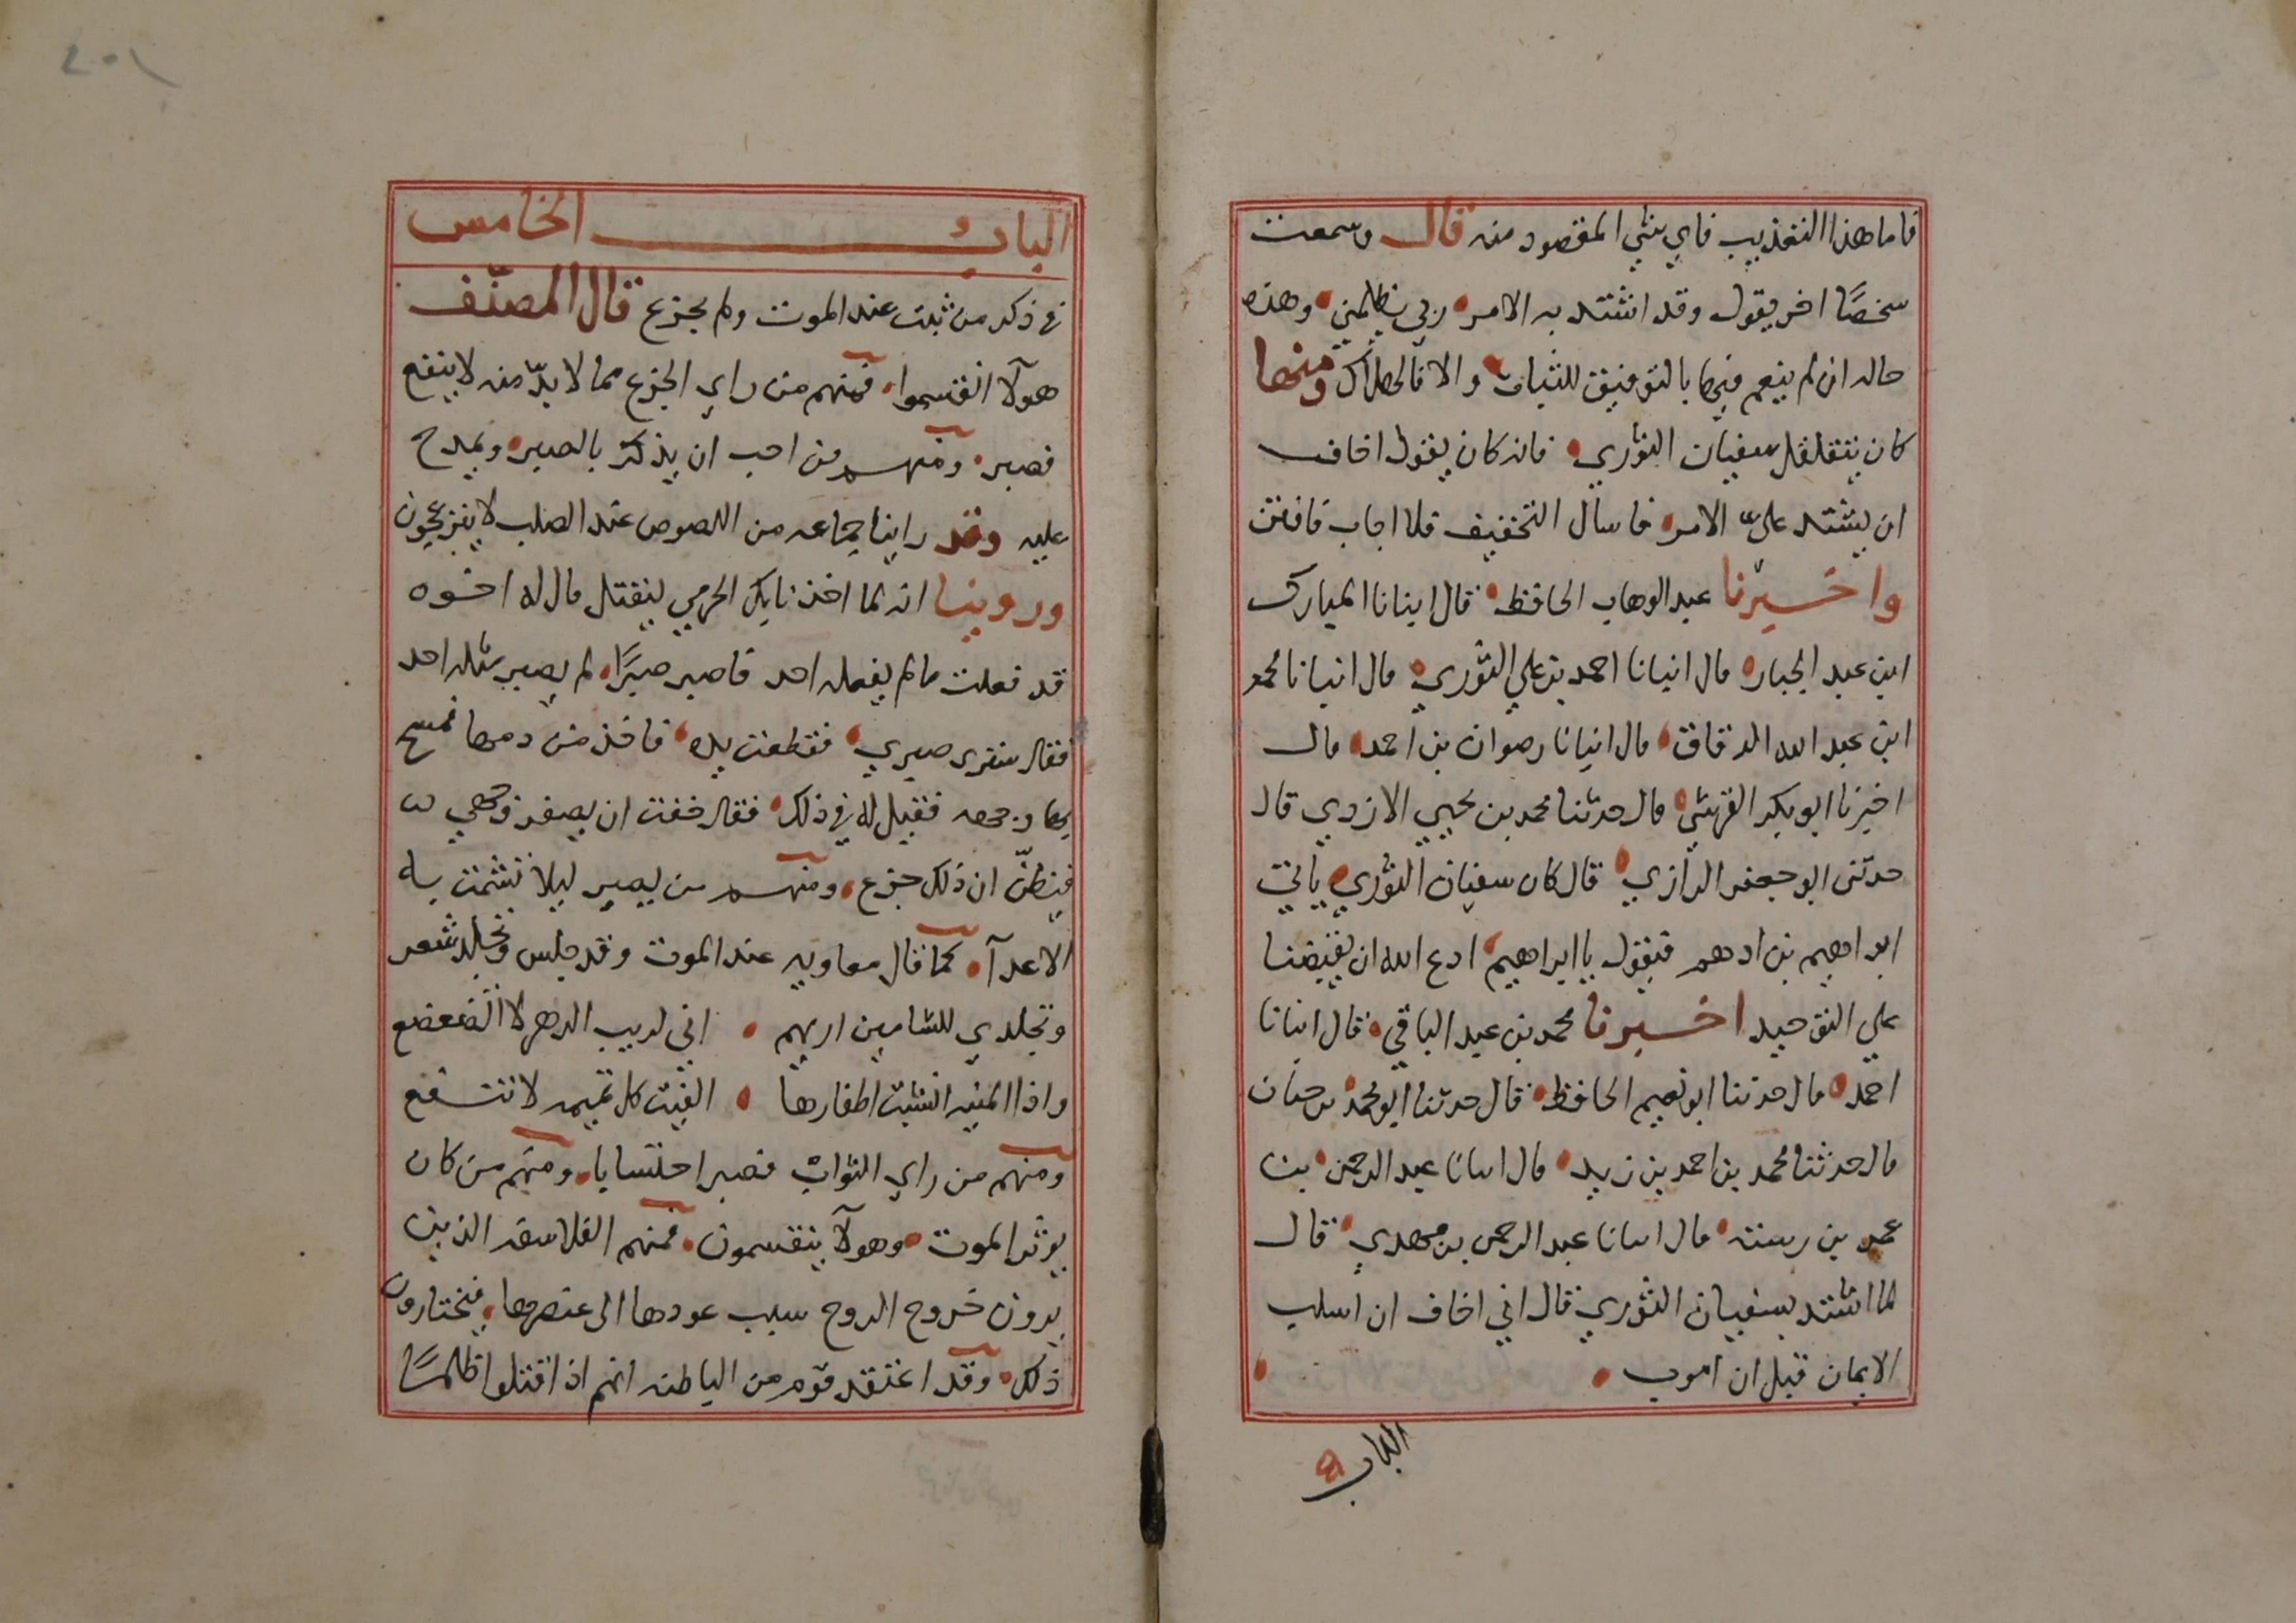 فاما هذا التعذيب فاي شي المقصود منه قال وسمعت
شخصًا اخر يقول وقد اشتد به الامر ربي يظلمني وهذه
حاله ان لم ينعم فيها بالتوفيق للثبات والا فالهلاك ومنها
كان يتقلقل سفيان الثوري فانه كان يقول اخاف
ان يشتد عليّ الامر فاسال التخفيف فلا اجاب فافتتن
واخبرنا عبد الوهاب الحافظ قال انبانا المبارك
ابن عبد الجبار قال انبانا احمد بن علي الثوري قال انبانا محمد
ابن عبد الله الدقاق قال انبانا رضوان بن احمد قال
اخبرنا ابو بكر القرشي قال حدثنا محمد بن يحيي الازدي قال
حدثني ابو جعفر الرازي قال كان سفيان الثوري ياتي
ابراهيم بن ادهم فيقول يا ابراهيم ادع الله ان يقبضنا
علي التوحيد اخبرنا محمد بن عبد الباقي قال انبانا
احمد قال حدثنا ابو نعيم الحافظ قال حدثنا ابو محمد بن حيان
قال حدثنا محمد بن احمد بن زيد قال انبانا عبد الرحمن بن
عمر بن رسته قال انبانا عبد الرحمن بن مهدي قال
لما اشتد بسفيان الثوري قال اني اخاف ان اسلب
الايمان قبل ان اموت
الباب
٢٠١
الباب الخامس
في ذكر من ثبت عند الموت ولم يجزع قال المصنّف
هولآ انقسموا فمنهم من راي الجزع مما لا بدّ منه لا ينفع
فصبر ومنهم من احب ان يذكر بالصبر ويمدح
عليه وقد راينا جماعه من اللصوص عند الصلب لا ينزعجون
وروينا انه لما اخذ بابك الخرمي ليقتل قال له اخوه
قد فعلت ما لم يفعله احد فاصبر صبرًا لم يصبر مثله احد
فقال سترى صبري فقطعت يده فاخذ من دمها فمسح
بها وجهه فقيل له في ذلك فقال خفت ان يصفر وجهي
فيظنّ ان ذلك جزع ومنهم من يصبر ليلا تشمت به
الاعدآ كما قال معاويه عند الموت وقد جلس وتجلد شعر
وتجلدي للشامتين اريهم اني لريب الدهر لا اتضعضع
واذا المنيه انشبت اظفارها الفيت كل تميمه لا تنفع
ومنهم من راي الثواب فصبر احتسابا ومنهم من كان
يوثر الموت وهولآ ينقسمون فمنهم الفلاسفه الذين
يرون خروج الروح سبب عودها الى عنصرها فيختارون
ذلك وقد اعتقد قوم من الباطنه انهم اذا قتلوا ظلمًا